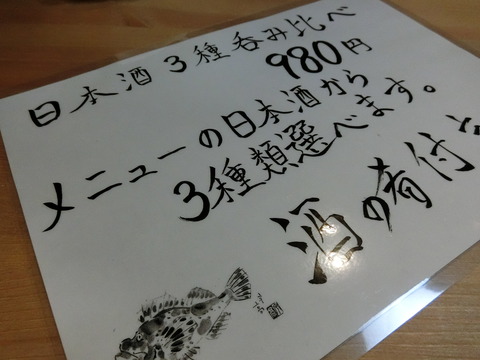 日本酒3種呑み比べ
980円
メニューの日本酒から
3種類選べます。
酒の肴付